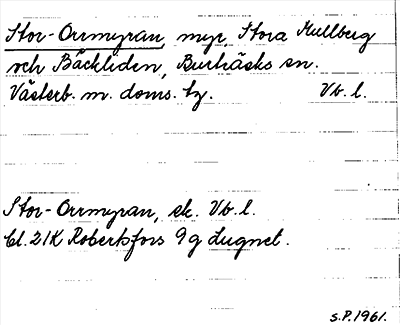 Stor-Orrmyran, myr, Stora Kullberg
och Bäckliden, Burträsks sn.
Västerb. m. doms. tg. Vb. l.
Stor-Orrmyran, ek. Vb. l.
Bl. 21K Robertsfors 9g Lugnet.
S.P. 1961.